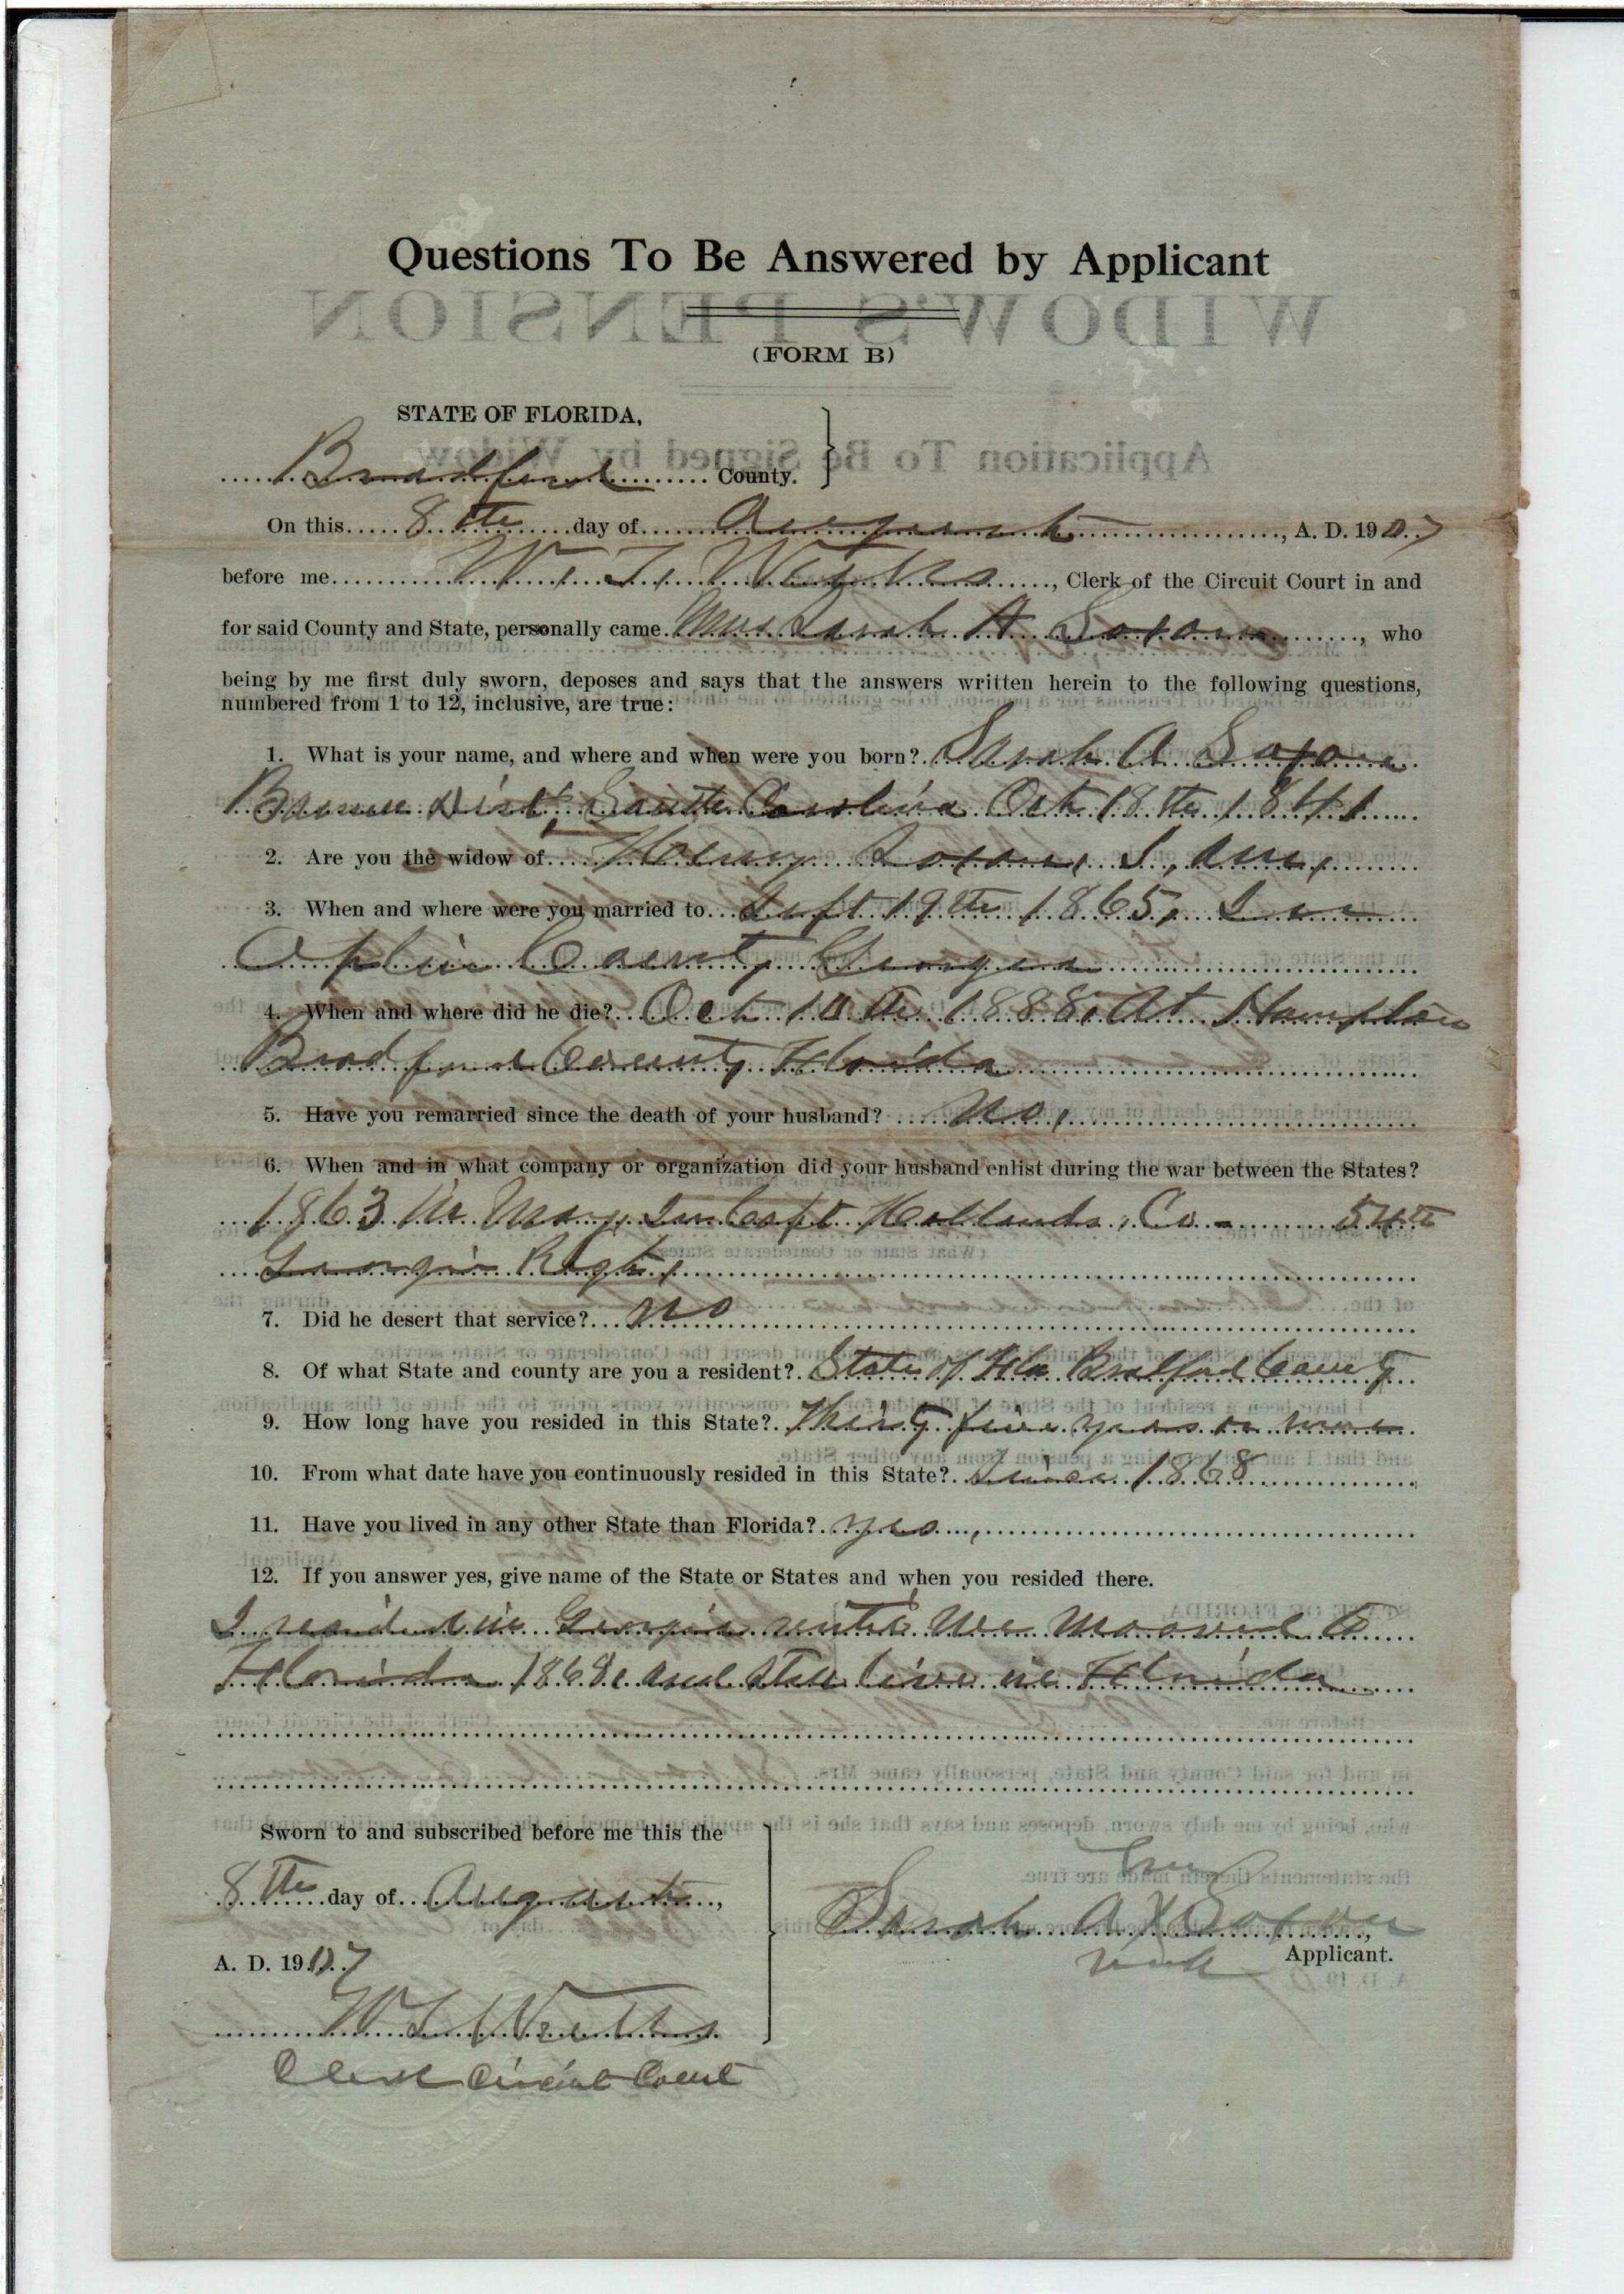 Questions To Be Answered by Applicant
WIDOW'S PENSION
(FORM B)
STATE OF FLORIDA,
Application To Be Signed by Widow
Bradford County.
On this 8th day of August, A. D. 1907
before me W. T. Weeks, Clerk of the Circuit Court in and
for said County and State, personally came Mrs Sarah A Soxon, who
being by me first duly sworn, deposes and says that the answers written herein to the following questions,
numbered from 1 to 12, inclusive, are true:
1. What is your name, and where and when were you born? Sarah A
Dist South Carolina Oct 18th 1841
2. Are you the widow of Henry I am,
3. When and where were you married to Sept 19th 1865, In
Aplin County Georgia
4. When and where did he die? Oct 10th 1888, At Hampton
Bradford County Florida
5. Have you remarried since the death of your husband? No,
6. When and in what company or organization did your husband enlist during the war between the States?
1863 in May, In Capt Hollands, Co - 54th
Georgia Regt,
7. Did he desert that service? no
8. Of what State and county are you a resident? State of Fla Bradford County
9. How long have you resided in this State? Thirty five years or more
10. From what date have you continuously resided in this State? Since 1868
11. Have you lived in any other State than Florida? yes,
12. If you answer yes, give name of the State or States and when you resided there.
I resided in Georgia until we mooved to
Florida 1868, and still live in Florida
Sworn to and subscribed before me this the
8th day of August,
A. D. 1907
her
Sarah A X
mark
Applicant.
Clerk Circuit Court